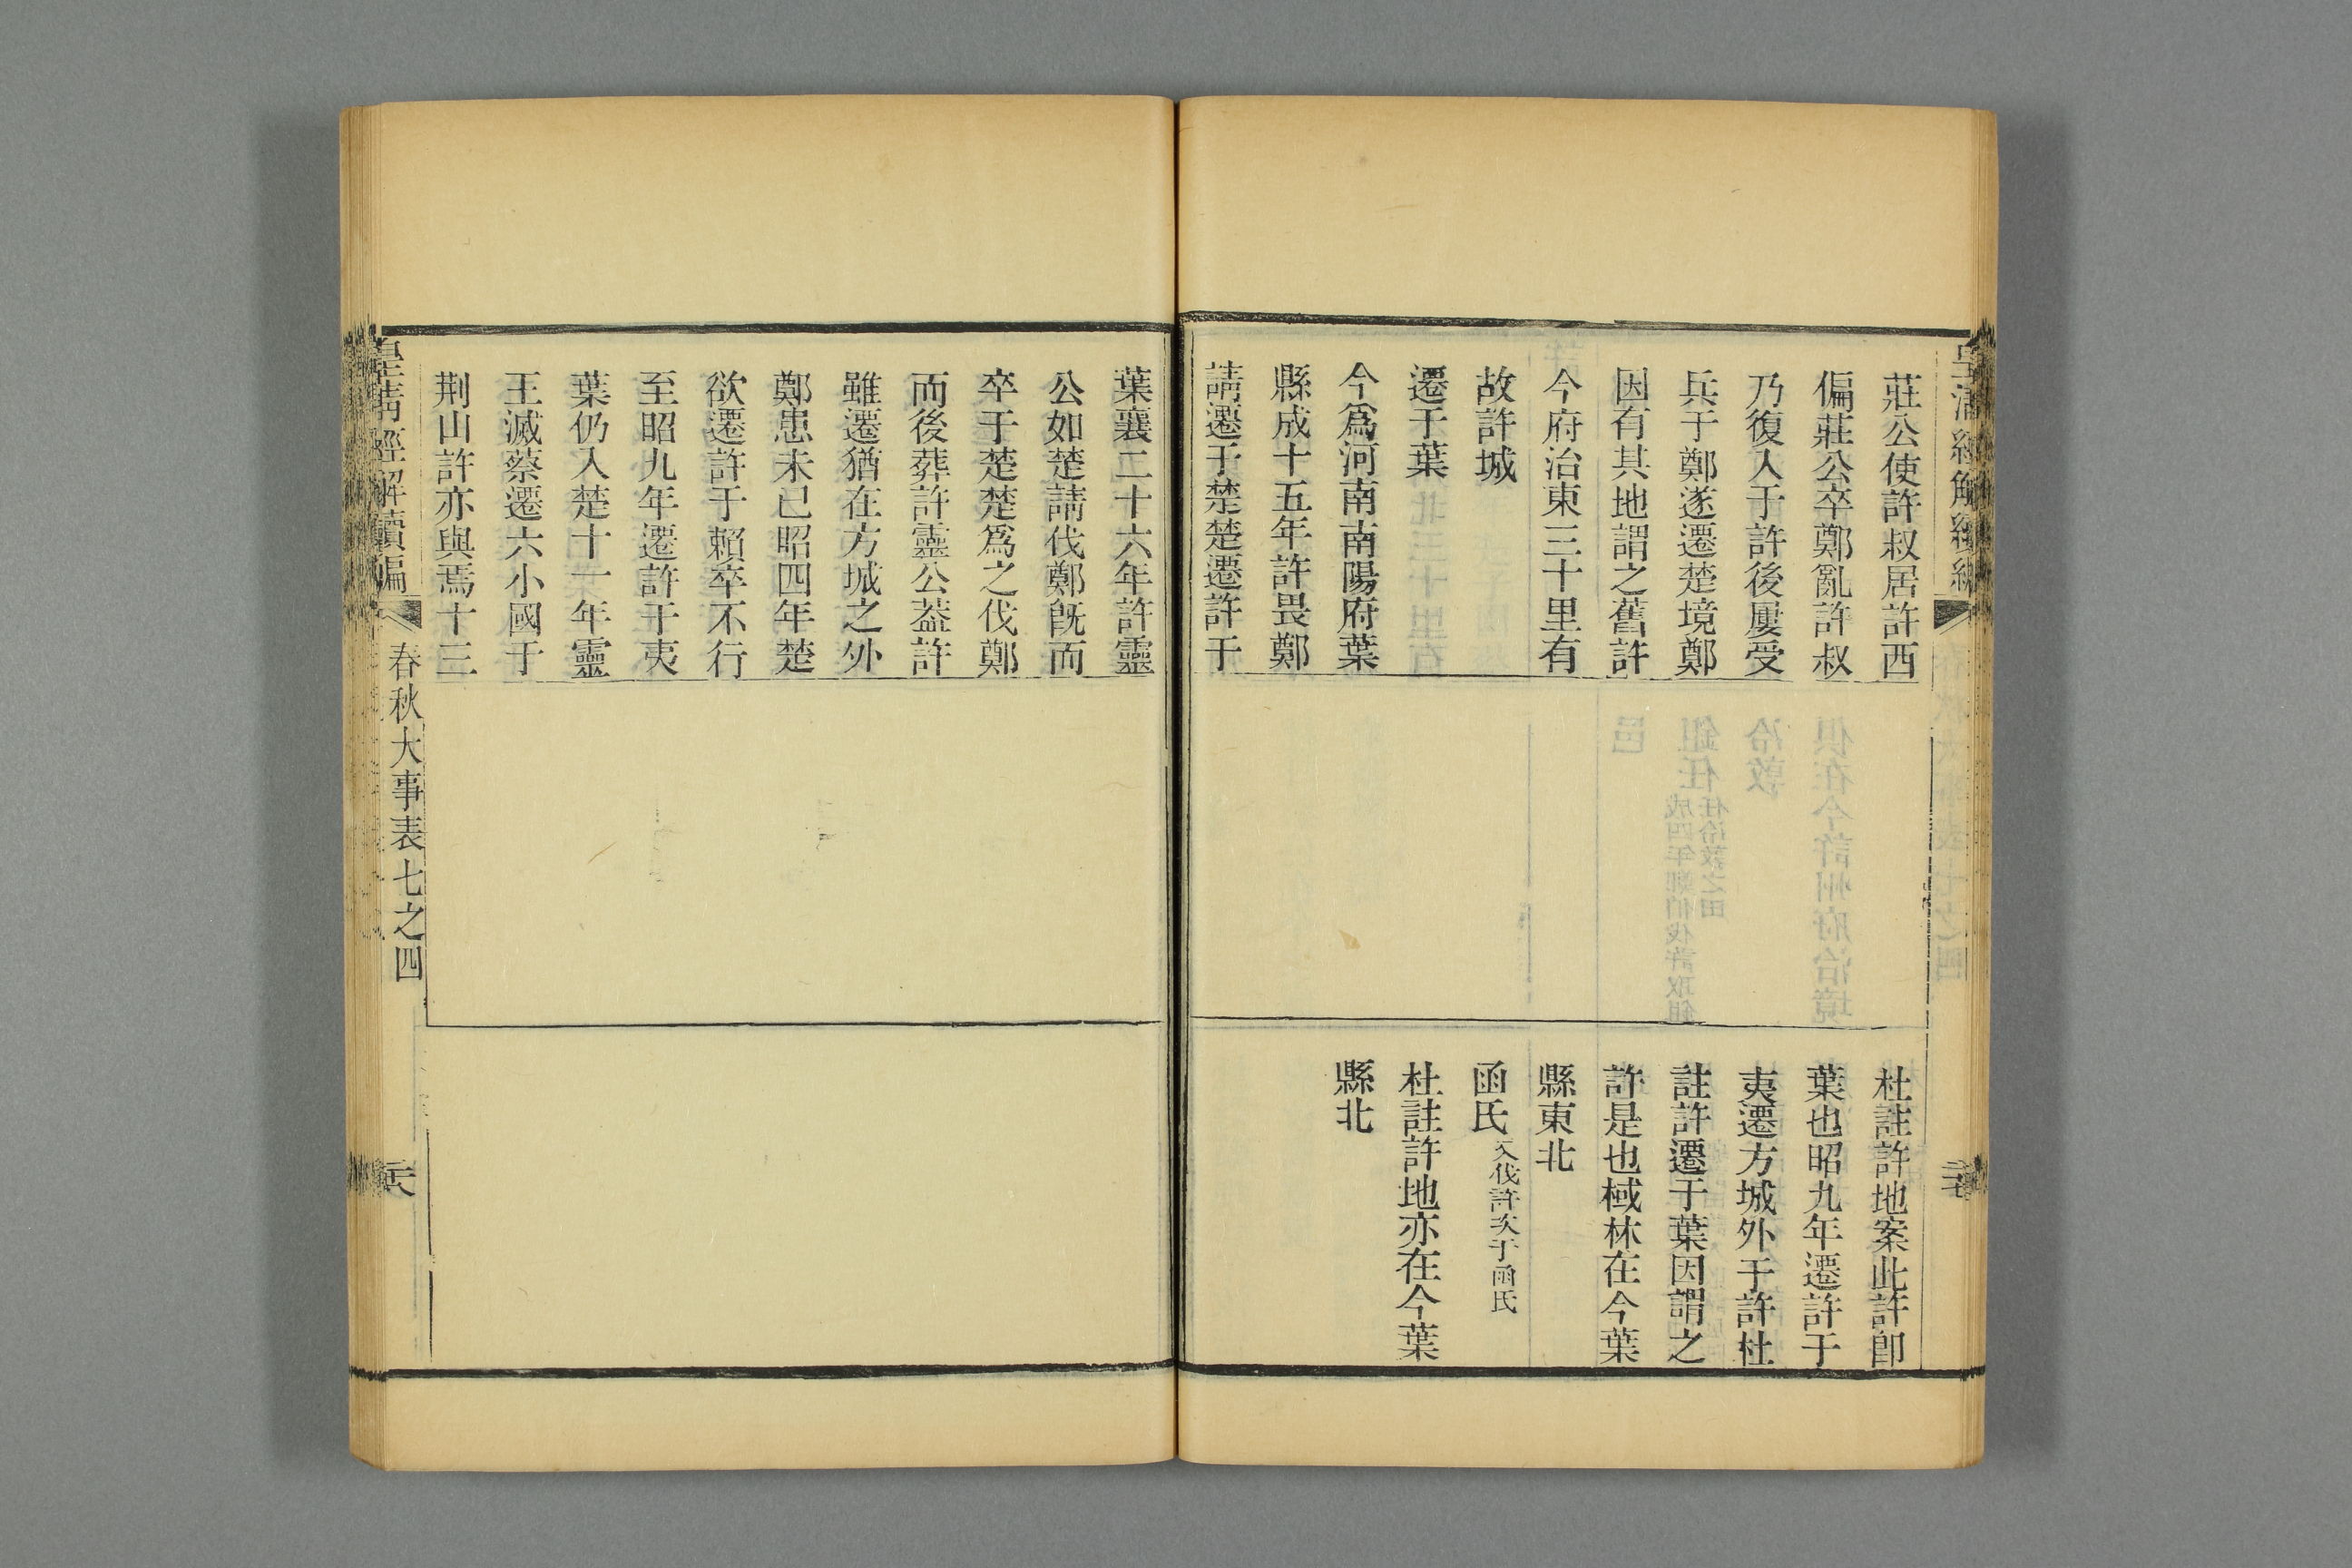 莊公使許叔居許西
偏莊公卒鄭亂許叔
乃復入于許後屢受
兵于鄭遂遷楚境鄭
因有其地謂之舊許
今府治東三十里有
故許城
遷于葉
今爲河南南陽府葉
縣成十五年許畏鄭
請遷于楚楚遷許于
杜註許地案此許卽
葉也昭九年遷許于
夷遷方城外于許杜
註許遷于葉因謂之
許是也棫林在今葉
縣東北
函氏又伐許次于函氏
杜註許地亦在今葉
縣北
葉襄二十六年許靈
公如楚請伐鄭旣而
卒于楚楚爲之伐鄭
而後葬許靈公葢許
雖遷猶在方城之外
鄭患未已昭四年楚
欲遷許于賴卒不行
至昭九年遷許于夷
葉仍入楚十一年靈
王滅蔡遷六小國于
荆山許亦與焉十三
皇淸經解續編
春秋大事表七之四